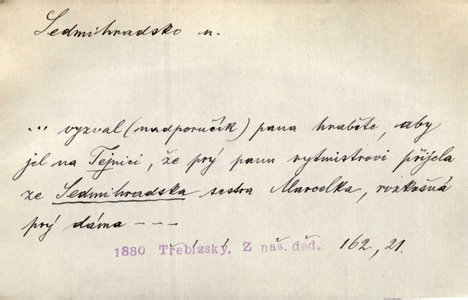 Sedmihradsko n.
... vyzval (nadporučík) pana hraběte, aby
jel na Tejnici, že prý panu rytmistrovi přijela
ze Sedmihradska sestra Marcelka, rozkošná
prý dáma - - -
1880 Třebízský, Z náš. děd. 162, 21.